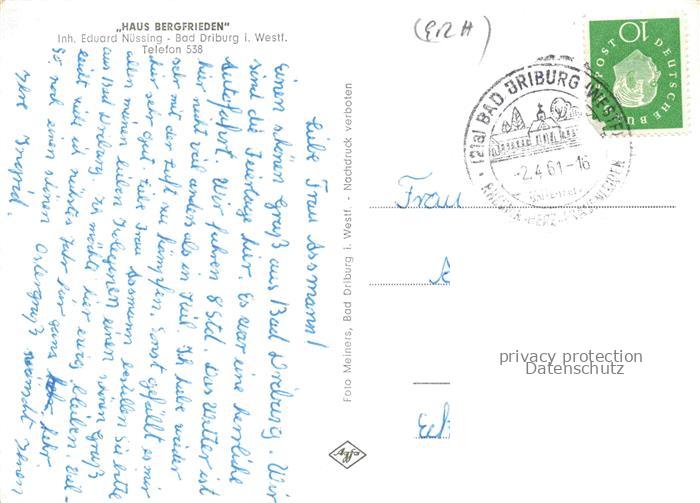 „HAUS BERGFRIEDEN"
Inh. Eduard Nüssing - Bad Driburg i. Westf.
Telefon 538
Liebe Frau Assmann!
Einen schönen Gruß aus Bad Driburg. Wir
sind die Feiertage hier. Es war eine herrliche
Autofahrt. Wir fuhren 8 Std. Das Wetter ist
hier nicht viel anders als in Kiel. Ich habe wieder
sehr mit der Luft zu kämpfen. Sonst gefällt es mir
hier sehr gut. Liebe Frau Assmann bestellen Sie bitte
allen meinen lieben Kolleginnen einen schönen Gruß
aus Bad Driburg. Ich möchte hier ewig bleiben. Viel-
leicht ich nächstes Jahr für ganz hier.
So noch einen schönen Ostergruß wünscht Ihnen
Ihre Ingrid.
Foto Meiners, Bad Driburg i. Westf. - Nachdruck verboten
Agfa
(ERH)
10
DEUTSCHE BUNDESPOST
(21a) BAD DRIBURG (WESTF)
-2.4.61-16
Frau
privacy protection
Datenschutz